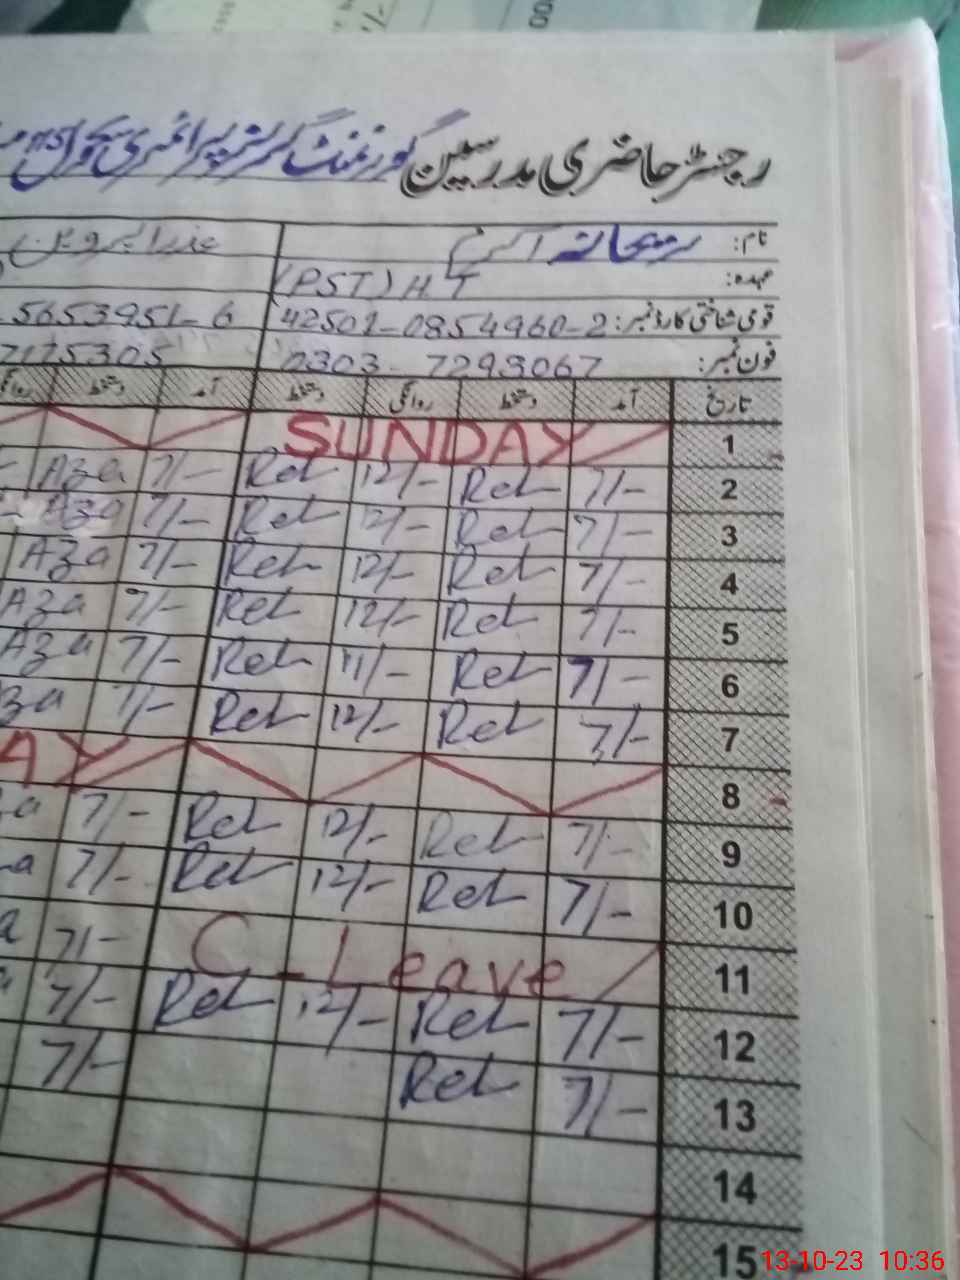 رجسٹر حاضری مدرسین گورنمنٹ گرلز پرائمری سکول
نام: ریحانہ اکرم
عہدہ: (PST) H T
قومی شناختی کارڈ نمبر: 42501-0854960-2 5653951-6
فون نمبر: 0303-7293067 7175305
تاریخ آمد دستخط روانگی دستخط آمد دستخط روانگی
1 SUNDAY
2 7/- Ret 12/- Ret 7/- Aza
3 7/- Ret 12/- Ret 7/- Aza
4 7/- Ret 12/- Ret 7/- Aza
5 7/- Ret 12/- Ret 7/- Aza
6 7/- Ret 11/- Ret 7/- Aza
7 7/- Ret 12/- Ret 7/- za
8 AY
9 7/- Ret 12/- Ret 7/- a
10 7/- Ret 12/- Ret 7/- a
11 C-Leave 7/- a
12 7/- Ret 12/- Ret 7/-
13 7/- Ret 7/-
14
15
13-10-23 10:36